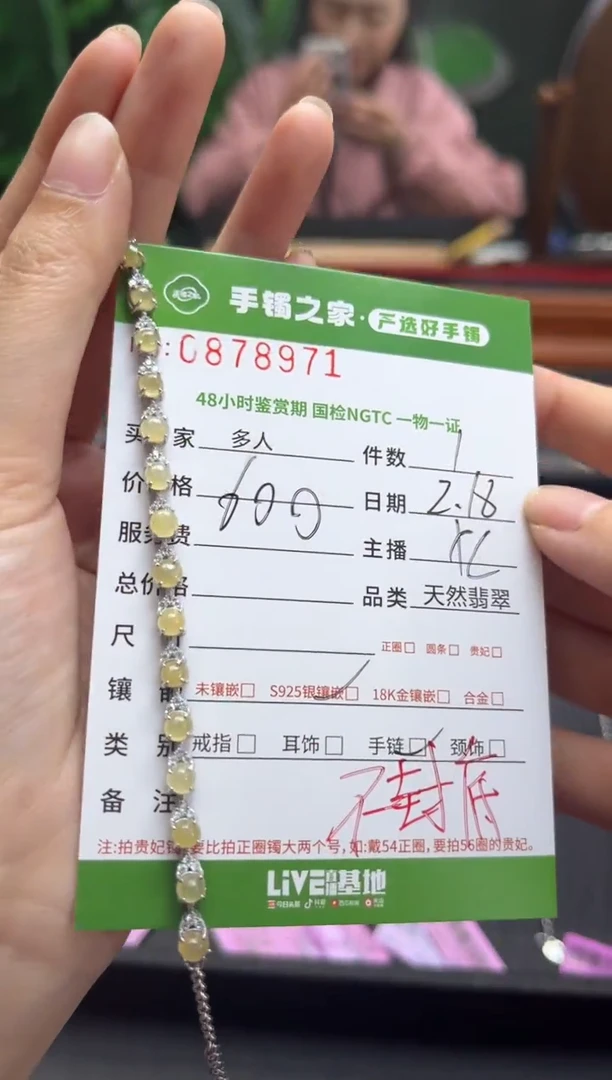 手镯之家·严选好手镯
:0878971
48小时鉴赏期 国检NGTC 一物一证
买 家 多人 件数 1
价 格 600 日期 2.18
服务费 主播
总价格 品类 天然翡翠
尺 正圈□ 圆条□ 贵妃□
镶 前 未镶嵌□ S925银镶嵌□ 18K金镶嵌□ 合金□
类 别 戒指□ 耳饰□ 手链□ 颈饰□
备 注 不封底
注:拍贵妃镯 要比拍正圈镯大两个号,如:戴54正圈,要拍56圈的贵妃。
LIVE 基地
今日头条 抖音 西瓜视频